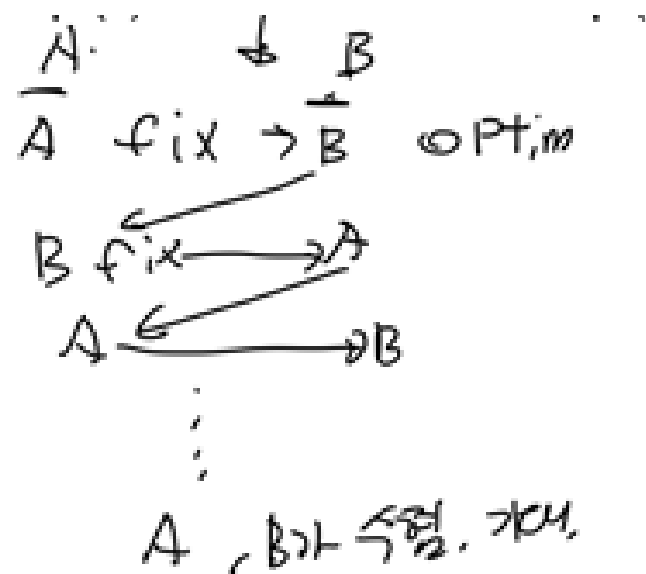 A. B
A fix → B optim
B fix → A
A → B
A, B가 수렴. 기대.